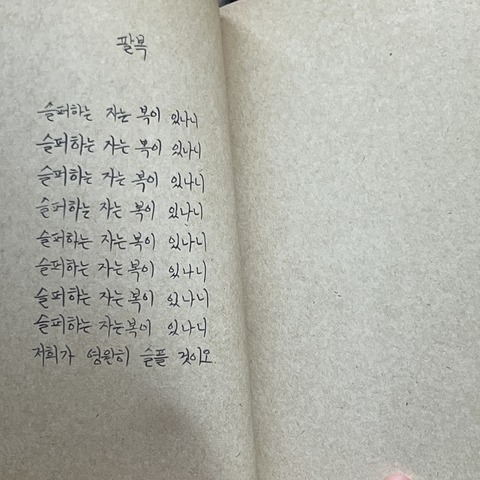 팔복
슬퍼하는 자는 복이 있나니
슬퍼하는 자는 복이 있나니
슬퍼하는 자는 복이 있나니
슬퍼하는 자는 복이 있나니
슬퍼하는 자는 복이 있나니
슬퍼하는 자는 복이 있나니
슬퍼하는 자는 복이 있나니
슬퍼하는 자는 복이 있나니
저희가 영원히 슬플 것이오.